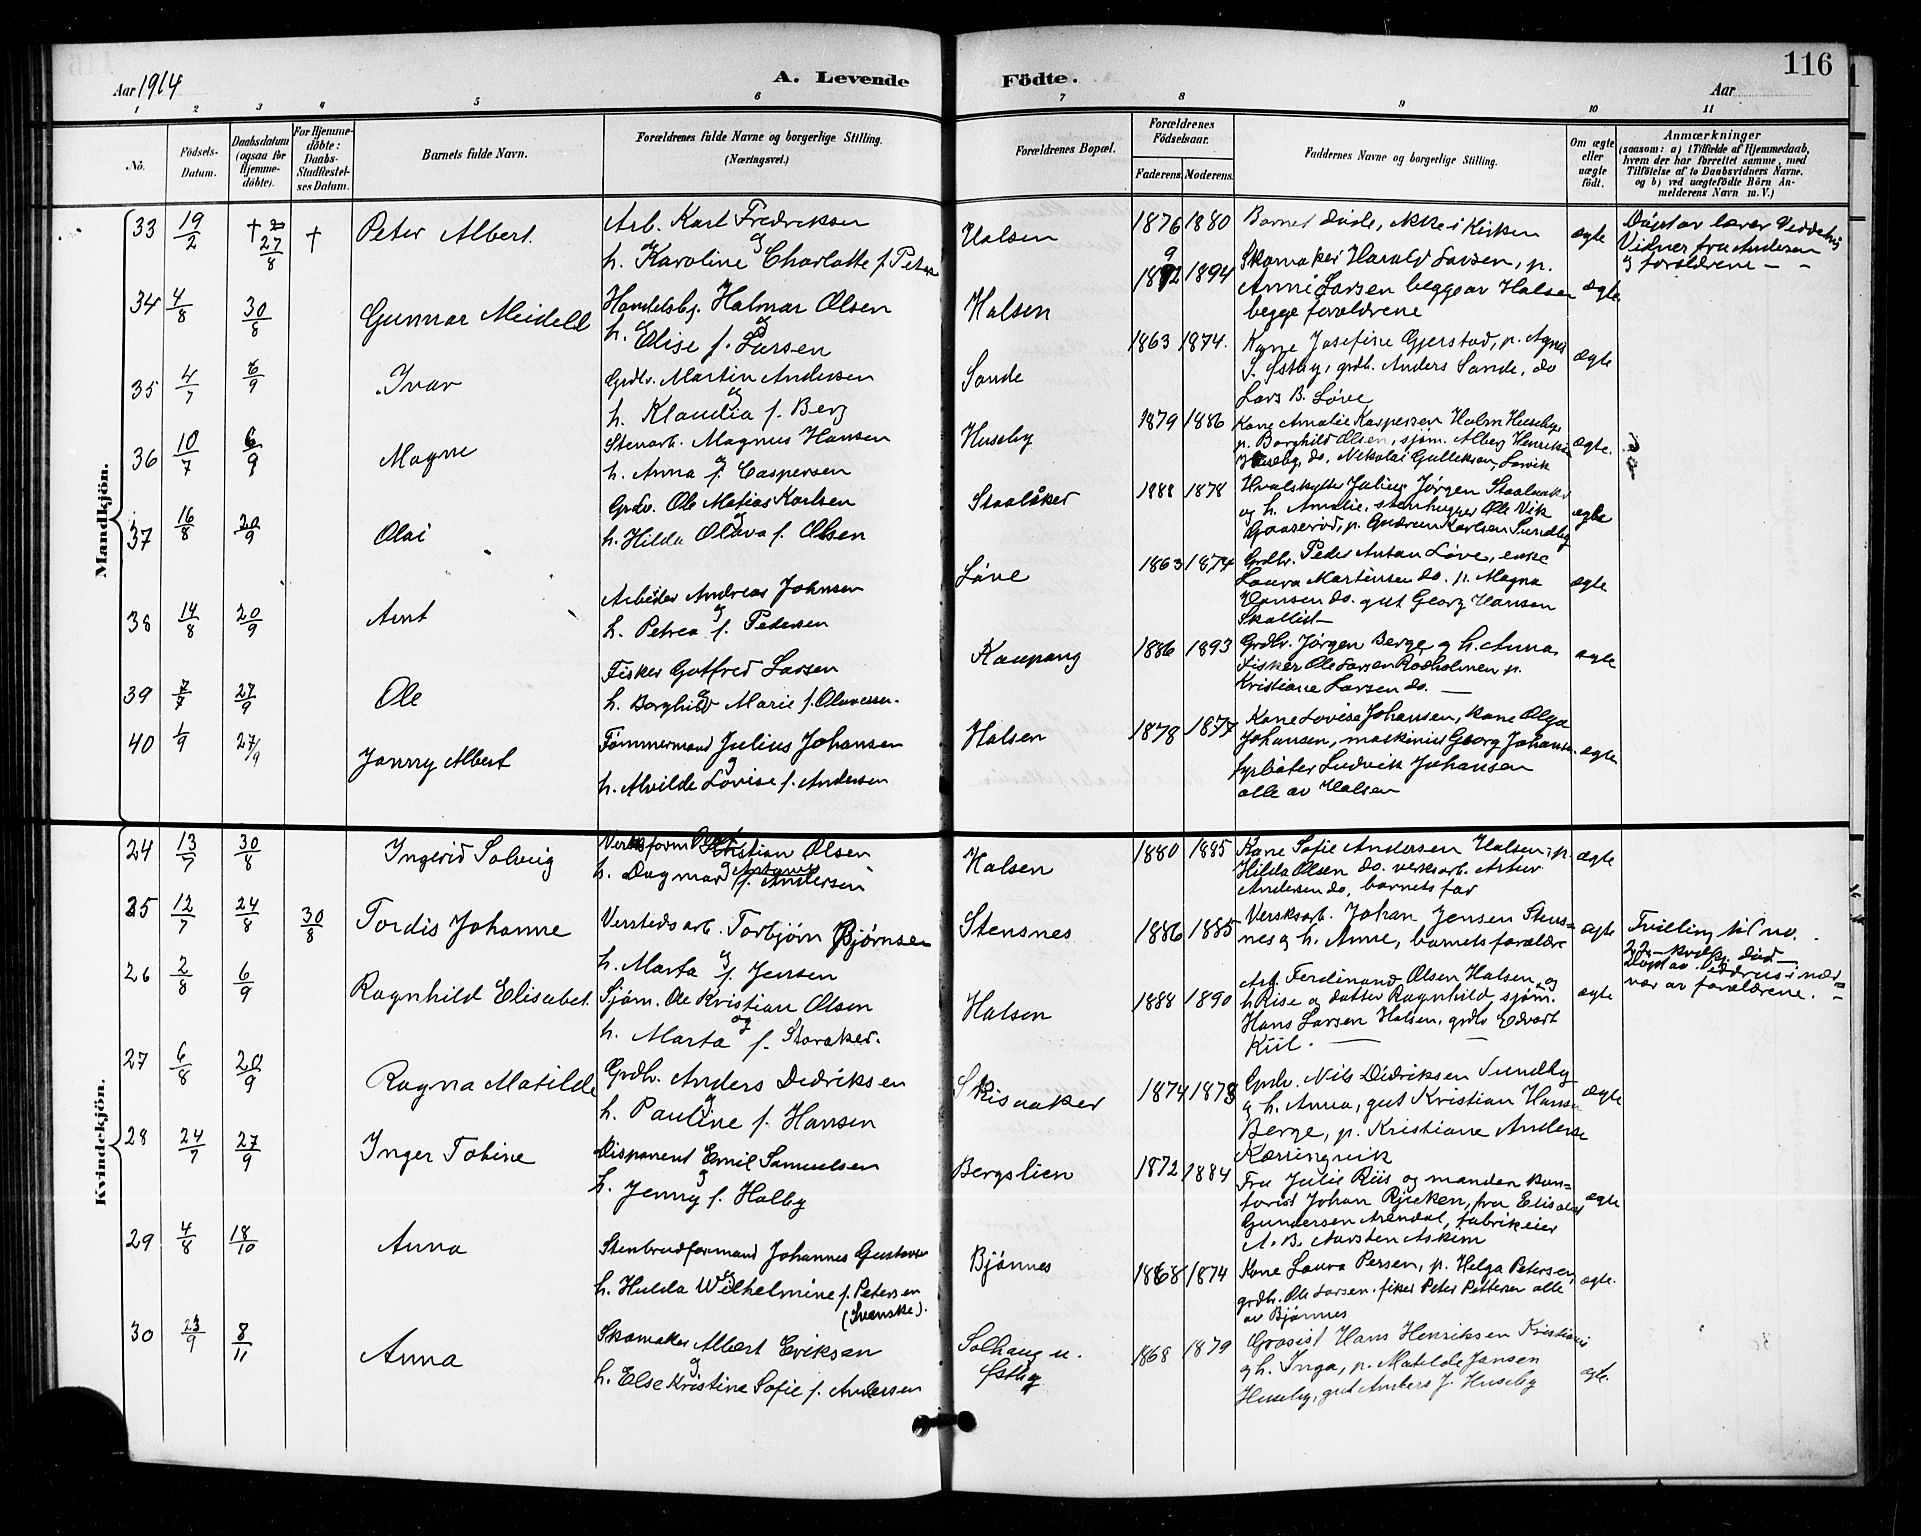 116
Aar 1914
A. Levende Födte.
Aar
1 2 3 4 5 6 7 8 9 10 11
No.
Födsels-Datum.
Daabsdatum (ogsaa for Hjemme-döbte).
For Hjemme-döbte: Daabs-Stadfæstel-ses Datum.
Barnets fulde Navn.
Forældrenes fulde Navne og borgerlige Stilling. (Næringsvei.)
Forældrenes Bopæl.
Forældrenes Födselsaar.
Faderens. Moderens.
Faddernes Navne og borgerlige Stilling.
Om ægte eller uægte födt.
Anmærkninger
(saasom: a) i Tilfælde af Hjemmedaab,
hvem der har forrettet samme, med
Tilföielse af to Daabsvidners Navne.
og b) ved uægtefödte Börn An-
melderens Navn m. V.)
Mandkjön.
33 19/2 † 27/8 † Peter Albert.
Arb. Karl Fredriksen
og
h. Karoline Charlotte f. Peters
Halsen 1876 1880
Barnet døde, ikke i Kirken
ægte
Døpt av lærer
Vidner fru Andersen
og forældrene — -
34 4/8 30/8 Gunnar Meidell
Handelsbg. Halmar Olsen
og
h. Elise f. Larsen
Halsen 1892 1894
Skomaker Harald Larsen, p.
Anni Larsen begge av Halsen
begge forældrene
ægte
35 4/7 6/9 Ivar
Grdbr. Martin Andersen
og
h. Klaudia f. Berg
Sande 1863 1874.
Kone Josefine Gjerstad, p. Agnes
S. Østby, grdb. Anders Sande, do
Lars B. Løve
ægte
36 10/7 6/9 Magne
Stenarb. Magnus Hansen
og
h. Anna f. Caspersen
Huseby 1879 1886
Kone Amalie Kaspersen Holm Huseby,
p. Borghild Olsen, sjøm. Alberg Henriksen
Huseby, do. Nikolai Gulleksen, Larvik
ægte.
37 16/8 20/9 Olai
Grdbr. Ole Matias Karlsen
og
h. Hilda Olava f. Olsen
Staalåker 1888 1878
Hvalskytter Julius Jørgen Staalaaker
og h. Amalie, stenhugger Ole Vik
Gaaserød, p. Gudrun Karlsen Sundby
ægte
38 14/8 20/9 Arnt
Arbeider Andreas Johnsen
og
h. Petrea f. Pedersen
Løve 1863 1874
Grdbr. Peder Anton Løve, enke
Laura Martinsen do. p. Magna
Hansen do. gut Georg Hansen
Skallist—
ægte
39 7/7 27/9 Ole
Fisker Gotfred Larsen
og
h. Borghild Marie f. Olavesen.
Kaupang 1886 1893
Grdbr. Jørgen Berge og h. Anna,
Fisker Ole Larsen Rødholmen p.
Kristiane Larsen do. —
ægte
40 1/9 27/9 Jonny Albert
Tømmermand Julius Johansen
og
h. Alvilde Lovise f. Andersen
Halsen 1878 1877
Kone Lovise Johansen, kone Olga
Johansen, maskinist Georg Johansen
fyrbøter Ludvik Johansen
alle av Halsen
ægte
Kvindekjön.
24 13/7 30/8 Ingerid Solveig
Kristian Olsen
h. Dagmar f. Andersen
Halsen 1880 1885
Kone Sofie Andersen Halsen, p.
Hilda Olsen do. verksarb. Artur
Andersen do, barnets far
ægte
25 12/7 24/8 30/8 Tordis Johanne
Verstedsarb. Torbjørn Bjørnsen
og
h. Marta f. Jensen
Stensnes 1886 1885
Versksarb. Johan Jensen Stens-
nes og h. Anne, barnets forældre
ægte
Tvilling til no.
22 — kvikj. død —
Døpt av Iddens i nær-
vær av forældrene. -
26 2/8 6/9 Ragnhild Elisabet
Sjøm. Ole Kristian Olsen
og
h. Marta f. Storaker.
Halsen 1888 1890
Arb. Ferdinand Olsen Halsen og
h. Rise og datter Ragnhild, sjøm.
Hans Larsen Halsen, grdb. Edvart
Kiil. — —
ægte
27 6/8 20/9 Ragna Matilde
Grdbr. Anders Didriksen
og
h. Pauline f. Hansen
Skisaaker 1874 1878
Grdbr. Nils Didriksen Sundby
og h. Anna, gut Kristian Hansen
Berge, p. Kristiane Anderse
Kærringvik
ægte
28 24/7 27/9 Inger Tobine
Disponent Emil Samuelsen
og
h. Jenny f. Holby
Bergslien 1872 1884
Fru Julie Riis og manden kon-
torist Johan Rjuken, fru Elisabet
Gundersen Arendal, fabrikeier
A. B. Aarsten Askim
ægte
29 4/8 18/10 Anna
Stenbrudformand Johannes Gustavs
og
h. Hulda Wilhelmine f. Petersen
(Svenske).
Bjønnes 1868 1874
Kone Laura Persen, p. Helga Petersen,
grdbr. Ole Larsen. fisker Peter Pettersen alle
av Bjønnes
ægte.
30 23/9 8/11 Anna
Skomaker Albert Eriksen
og
h. Else Kristine Sofie f. Andersen
Solhaug u.
Østby
1868 1879
Grosist Hans Henriksen Kristiania
og h. Inga, p. Matilde Jansen
Huseby, gut Anders J. Huseby
ægte.